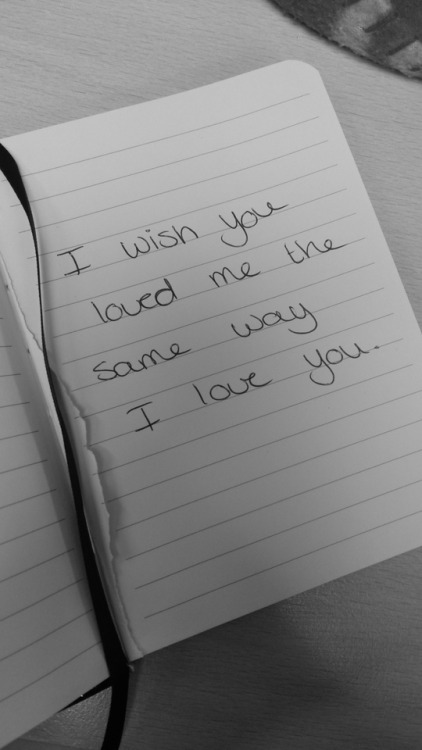 I wish you
loved me the
same way
I love you.